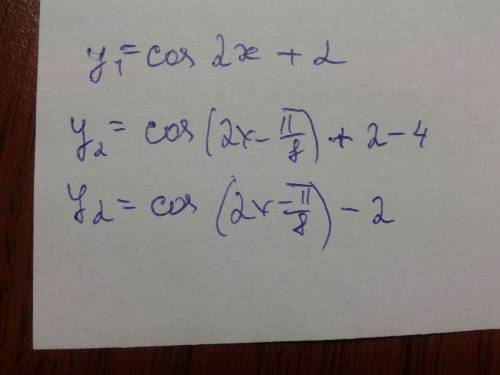 y₁ = cos 2x + 2
y₂ = cos (2x - π/8) + 2 - 4
y₂ = cos (2x - π/8) - 2